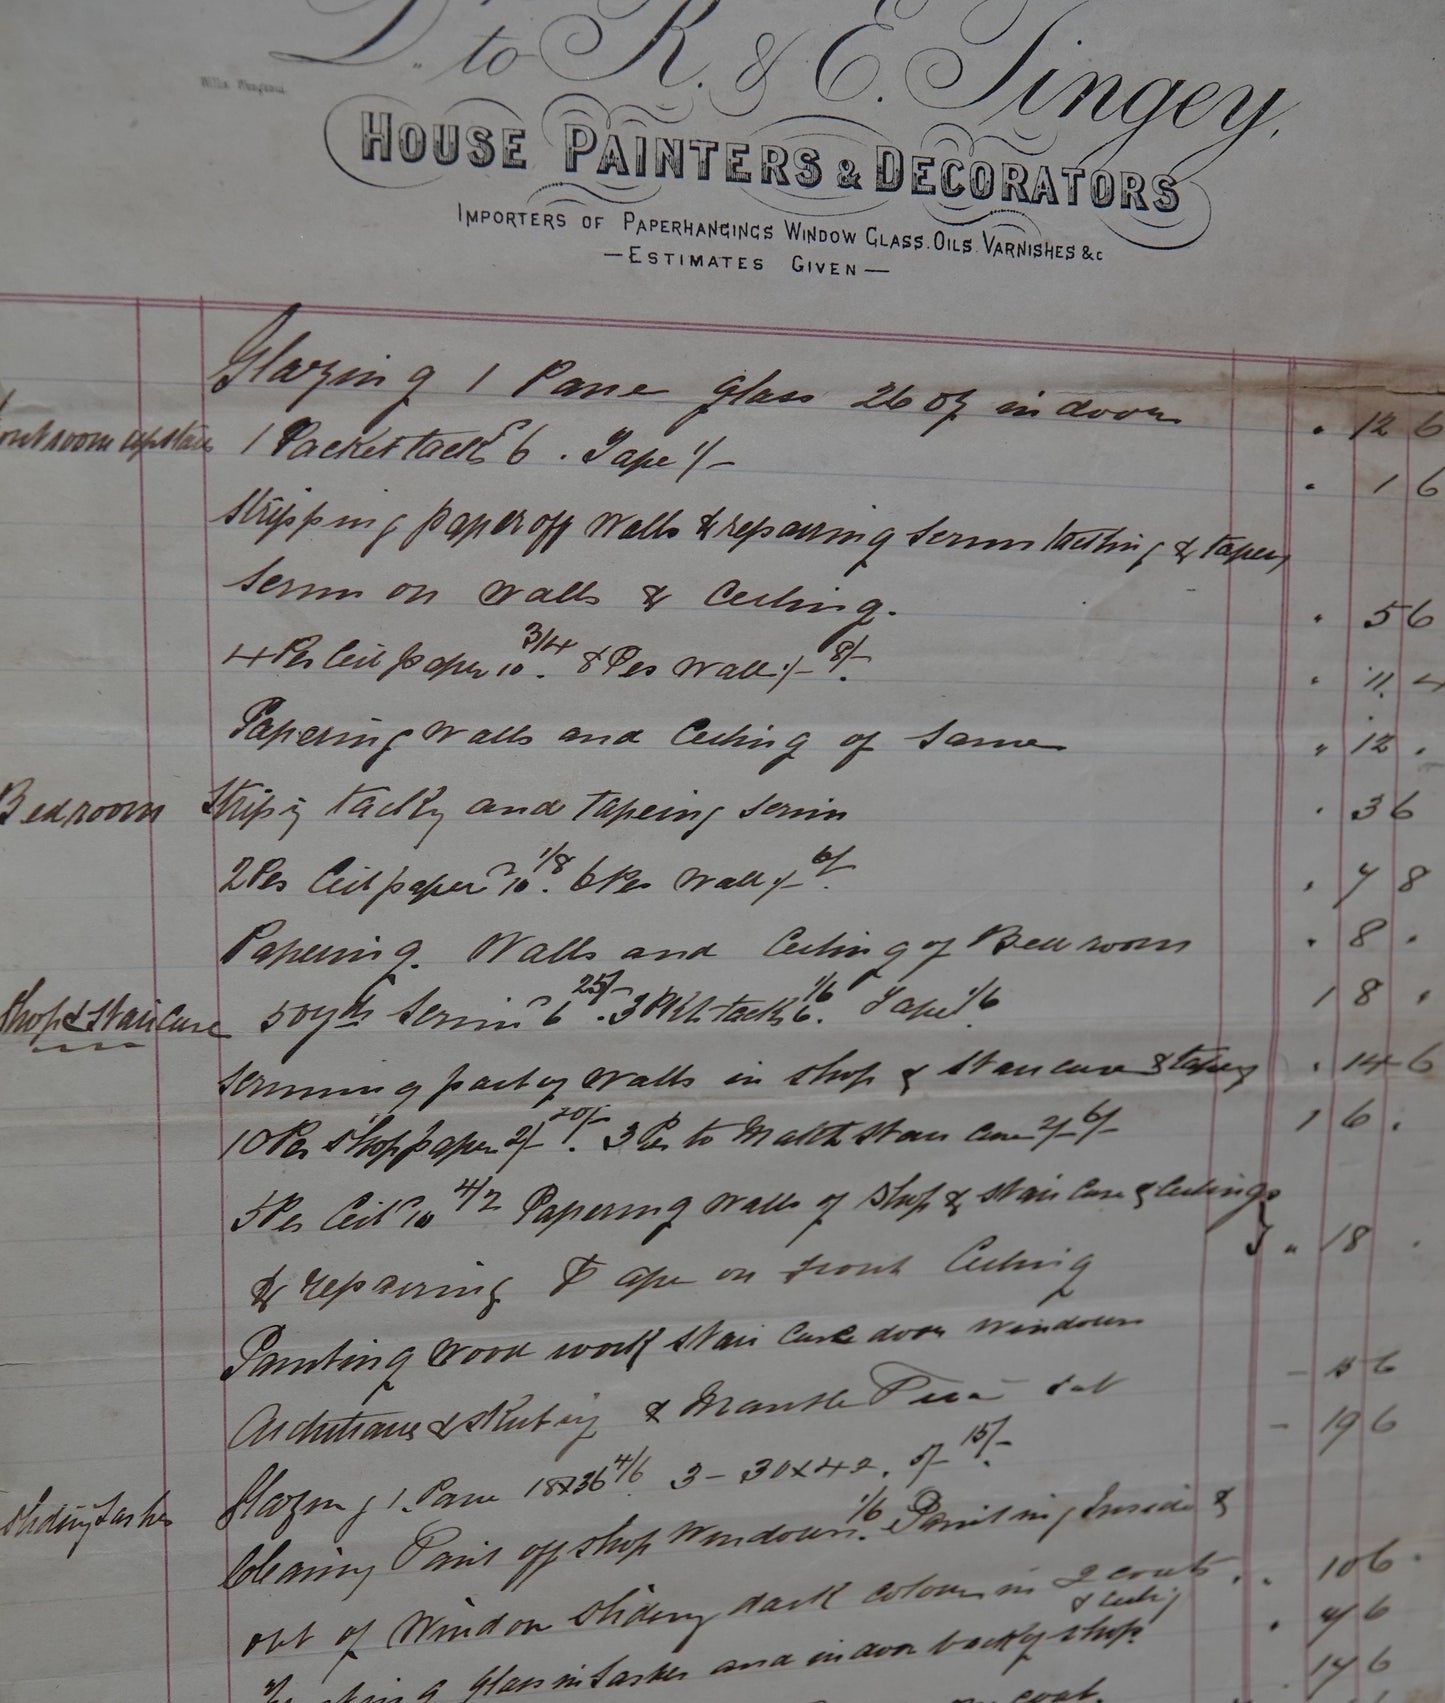 Dr. to R. & E. Tingey,
HOUSE PAINTERS & DECORATORS
IMPORTERS OF PAPERHANGINGS WINDOW GLASS. OILS. VARNISHES &c
— ESTIMATES GIVEN —
Glazing 1 Pane glass 26 oz in door " 12 6
front room upstairs 1 Packet tacks 6 . Tape 1/- " 1 6
Stripping paper off Walls & repairing Scrim tacking & taping
Scrim on Walls & Ceiling. " 5 6
4 Pcs Ceil paper 10. 3/4 8 Pcs Wall 1/- 8/- " 11 4
Papering Walls and Ceiling of Same " 12 .
Bedroom Strip'g tack'g and tapeing Scrim " 3 6
2 Pcs Ceil paper 10. 1/8 6 Pcs Wall 1/- 6/- " 7 8
Papering. Walls and Ceiling of Bedroom " 8 .
Shop & Staircase 50 yds Scrim 6 25/- . 3 Pkt tacks 6. 1/6 Tape 1/6 1 8 .
Scrimming part of Walls in shop & staircase & taping " 14 6
10 Pcs Shop paper 2/- 20/- . 3 Pcs to Match stair case 2/- 6/- 1 6 .
5 Pcs Ceil 10 4/2 Papering Walls of Shop & stair Case & Ceilings
& repairing Tape on front Ceiling 3 " 18 .
Painting Wood work stair Case door windows
Architraves & Skirting & Mantle Piece - 15 6
Glazing 1. Pane 18x36 4/6 3 - 30x42. 5/- 15/-. - 19 6
Sliding Sashes Cleaning Paint off shop Windows. 1/6 Painting Inside &
out of Window Sliding dark colour in 2 coats . " 10 6
glass in Sashes and in door back of shop " 4 6
14 6
coat.